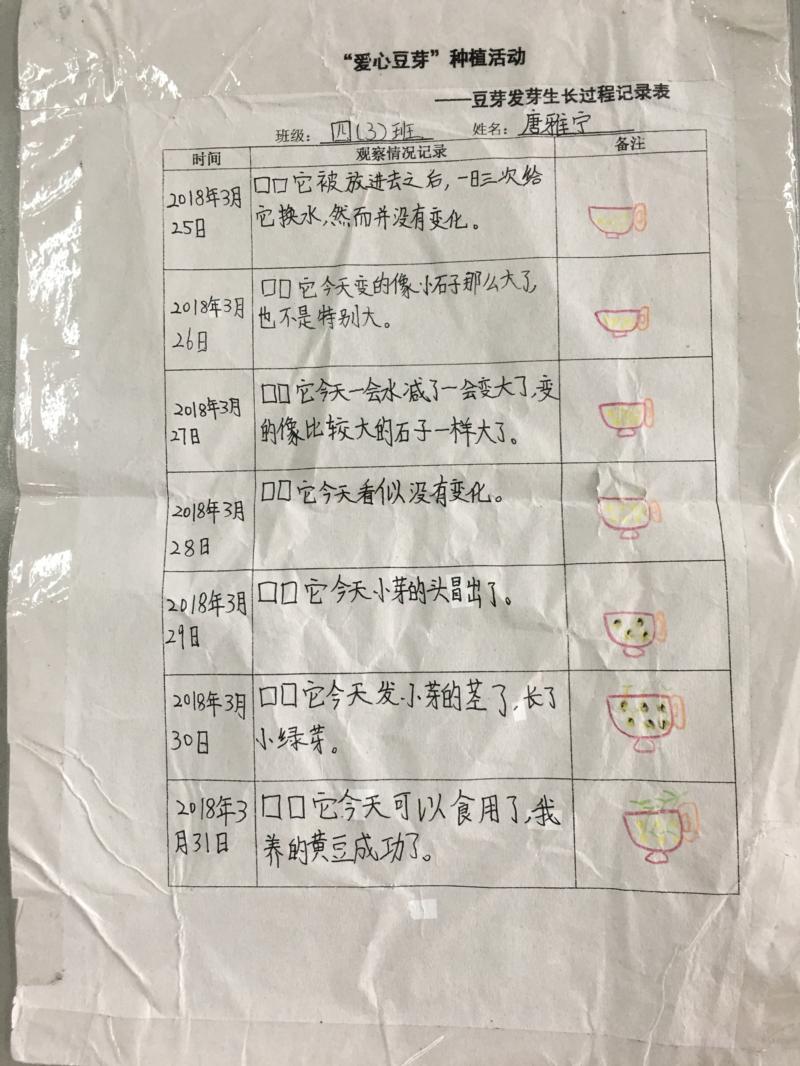 “爱心豆芽”种植活动
——豆芽发芽生长过程记录表
班级：四(3)班 姓名：唐雅宁
时间 观察情况记录 备注
2018年3月
25日
□□它被放进去之后，一日三次给
它换水，然而并没有变化。
2018年3月
26日
□□它今天变的像小石子那么大了，
也不是特别大。
2018年3月
27日
□□它今天一会水减了一会变大了，变
的像比较大的石子一样大了。
2018年3月
28日
□□它今天看似没有变化。
2018年3月
29日
□□它今天小芽的头冒出了。
2018年3月
30日
□□它今天发小芽的茎了，长了
小绿芽。
2018年3
月31日
□□它今天可以食用了，我
养的黄豆成功了。